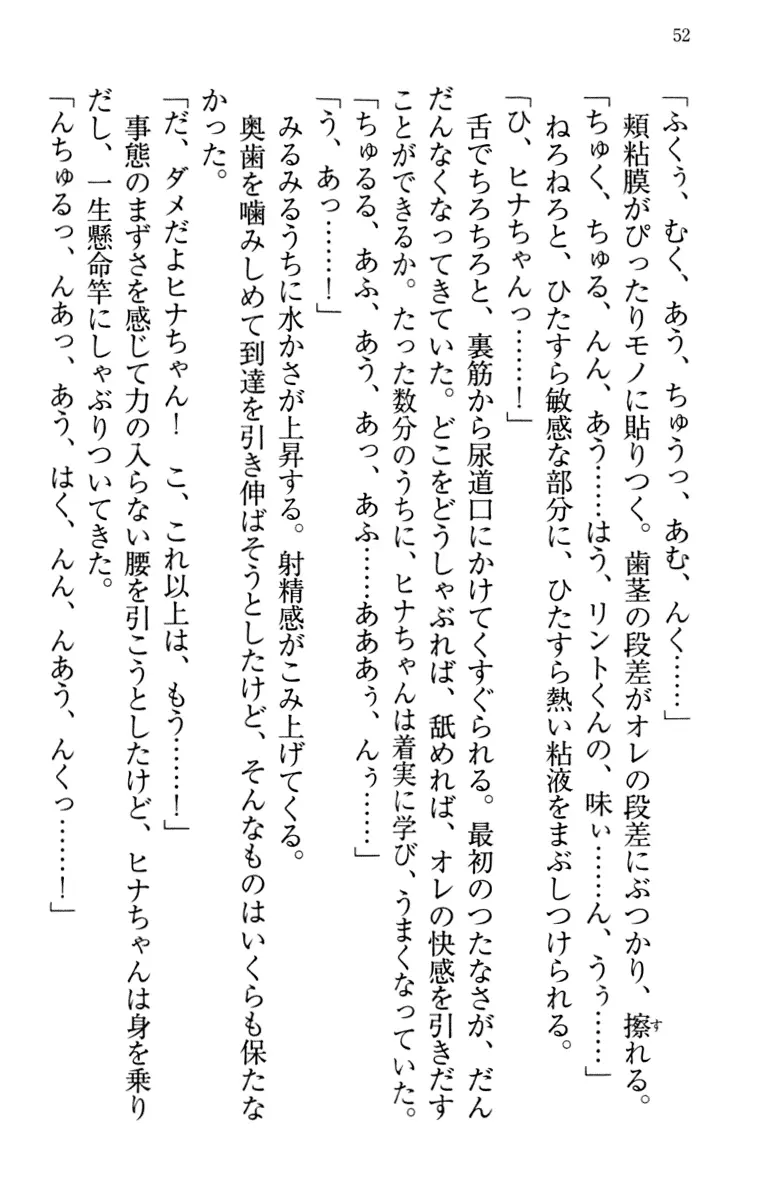 52
「ふくぅ、むく、あう、ちゅうっ、あむ、んく……」
頬粘膜がぴったりモノに貼りつく。歯茎の段差がオレの段差にぶつかり、擦れる。
「ちゅく、ちゅる、んん、あう……はう、リントくんの、味ぃ……ん、うぅ……」
ねろねろと、ひたすら敏感な部分に、ひたすら熱い粘液をまぶしつけられる。
「ひ、ヒナちゃんっ……！」
舌でちろちろと、裏筋から尿道口にかけてくすぐられる。最初のつたなさが、だん
だんなくなってきていた。どこをどうしゃぶれば、舐めれば、オレの快感を引きだす
ことができるか。たった数分のうちに、ヒナちゃんは着実に学び、うまくなっていた。
「ちゅるる、あふ、あう、あっ、あふ……あああぅ、んぅ……」
「う、あっ……！」
みるみるうちに水かさが上昇する。射精感がこみ上げてくる。
奥歯を噛みしめて到達を引き伸ばそうとしたけど、そんなものはいくらも保たな
かった。
「だ、ダメだよヒナちゃん！　こ、これ以上は、もう……！」
事態のまずさを感じて力の入らない腰を引こうとしたけど、ヒナちゃんは身を乗り
だし、一生懸命竿にしゃぶりついてきた。
「んちゅるっ、んあっ、あう、はく、んん、んあう、んくっ……！」